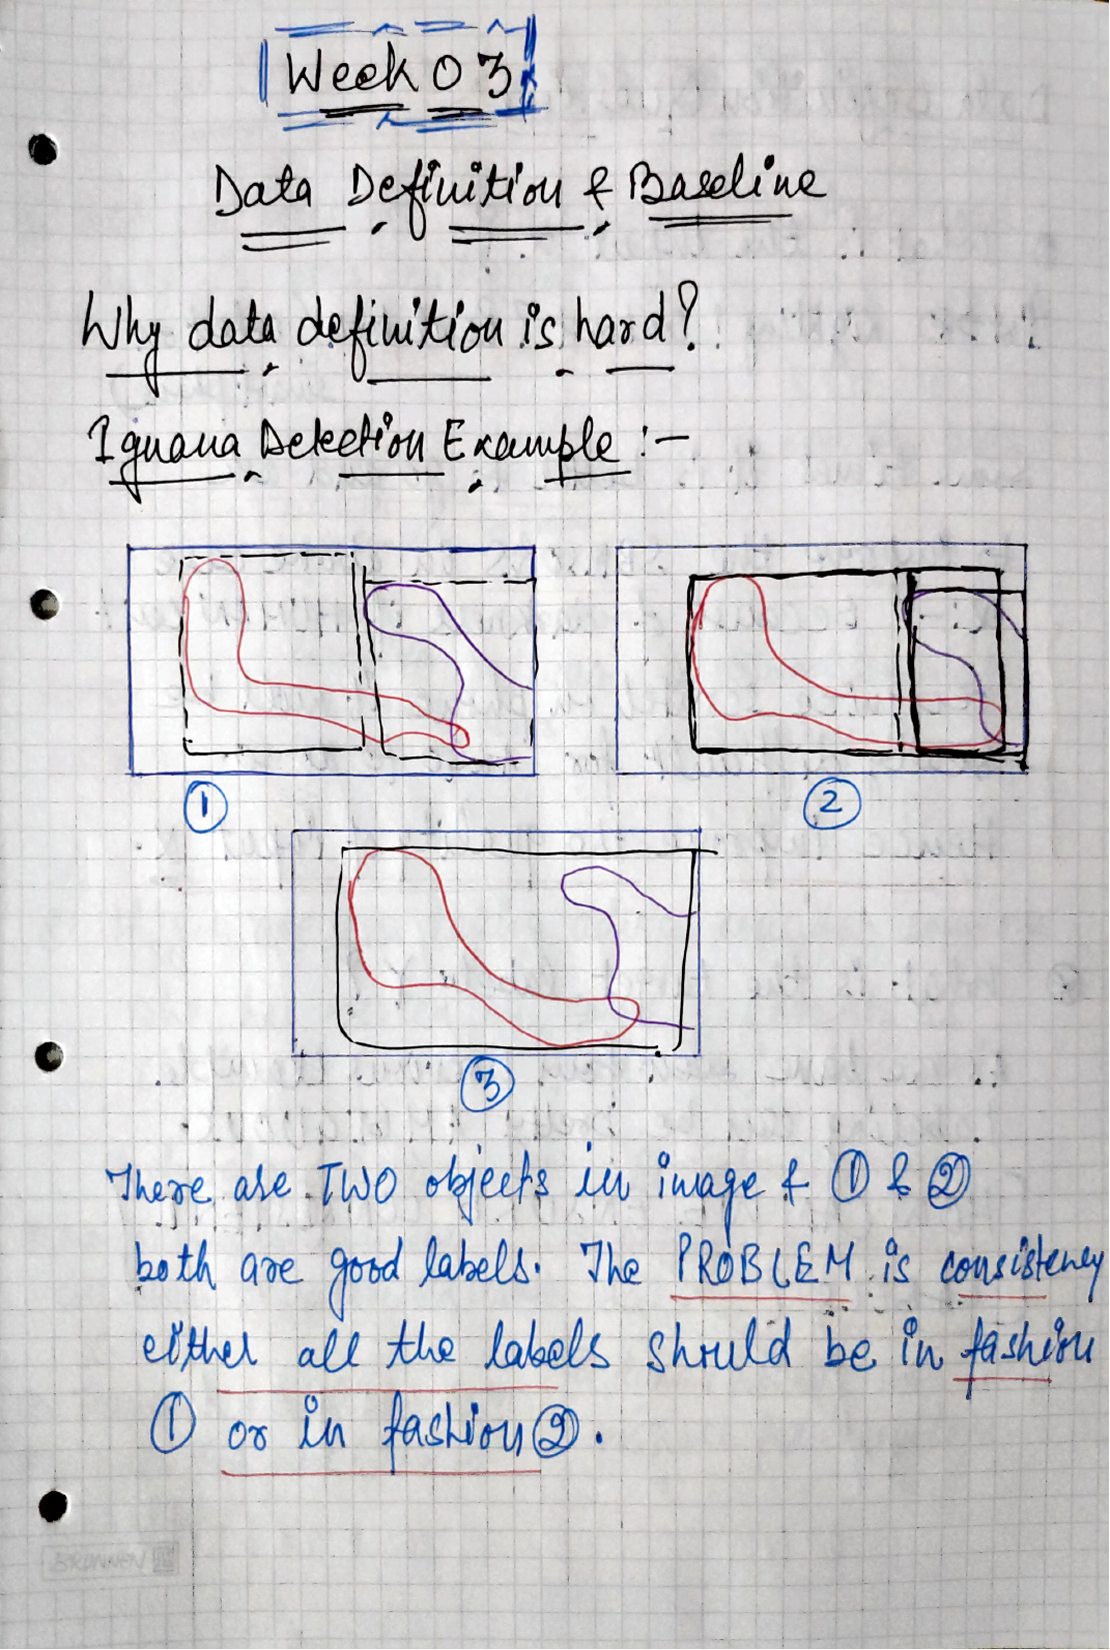 Week 03
Data Definition & Baseline
Why data definition is hard?
Iguana Detection Example :-
1
2
3
There are TWO objects in image & ① & ②
both are good labels. The PROBLEM is consistency
either all the labels should be in fashion
① or in fashion ②.
BRUNNEN